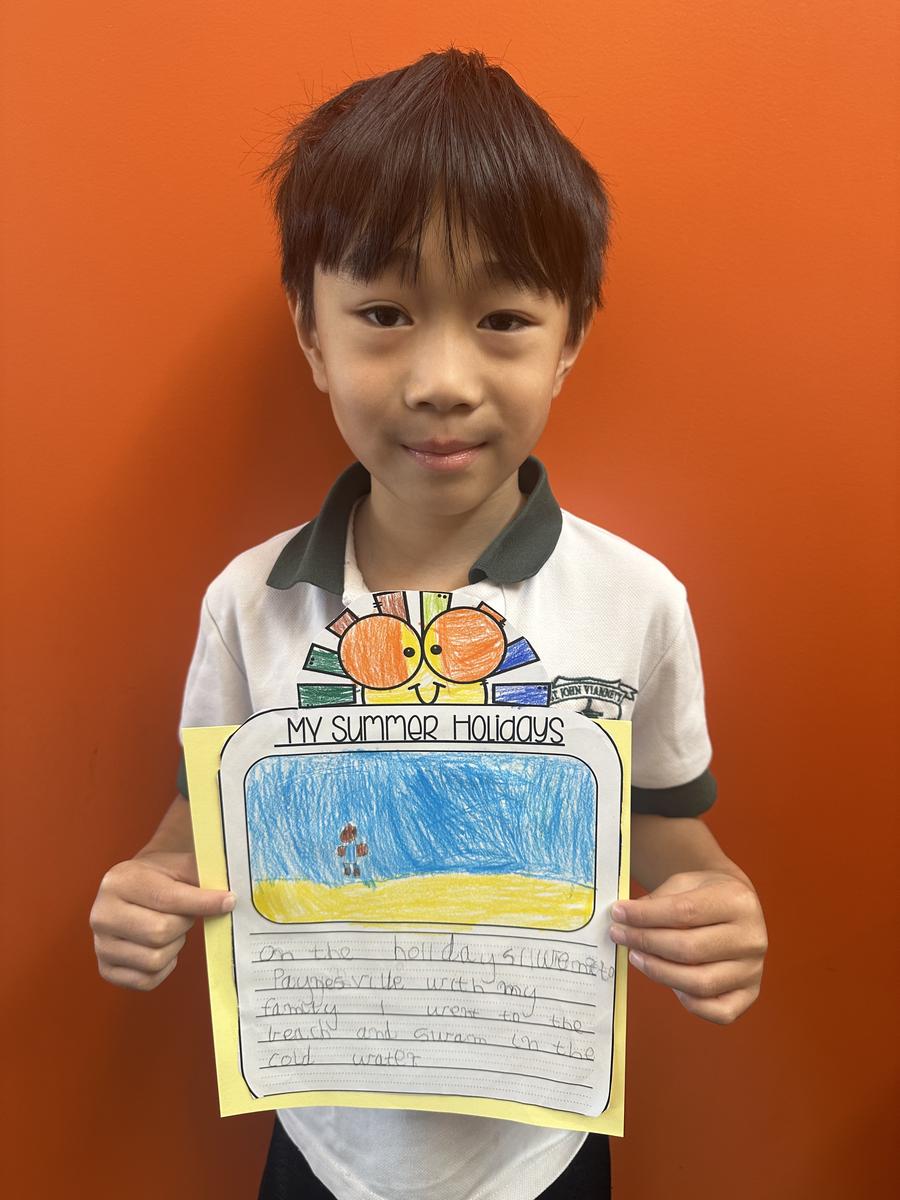 ST JOHN VIANNEY
MY SUMMER HOLIdAYS
on the holidays I went to
Paynesville with my
family I went to the
beach and swam in the
cold water